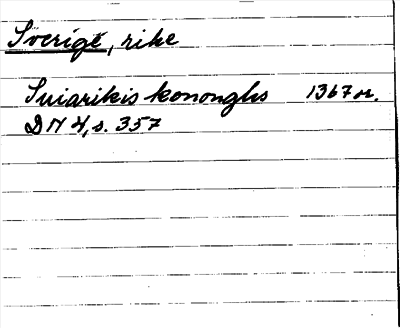 Sverige, rike
Suiarikis kononghs 1367 or.
DN 4, s. 357